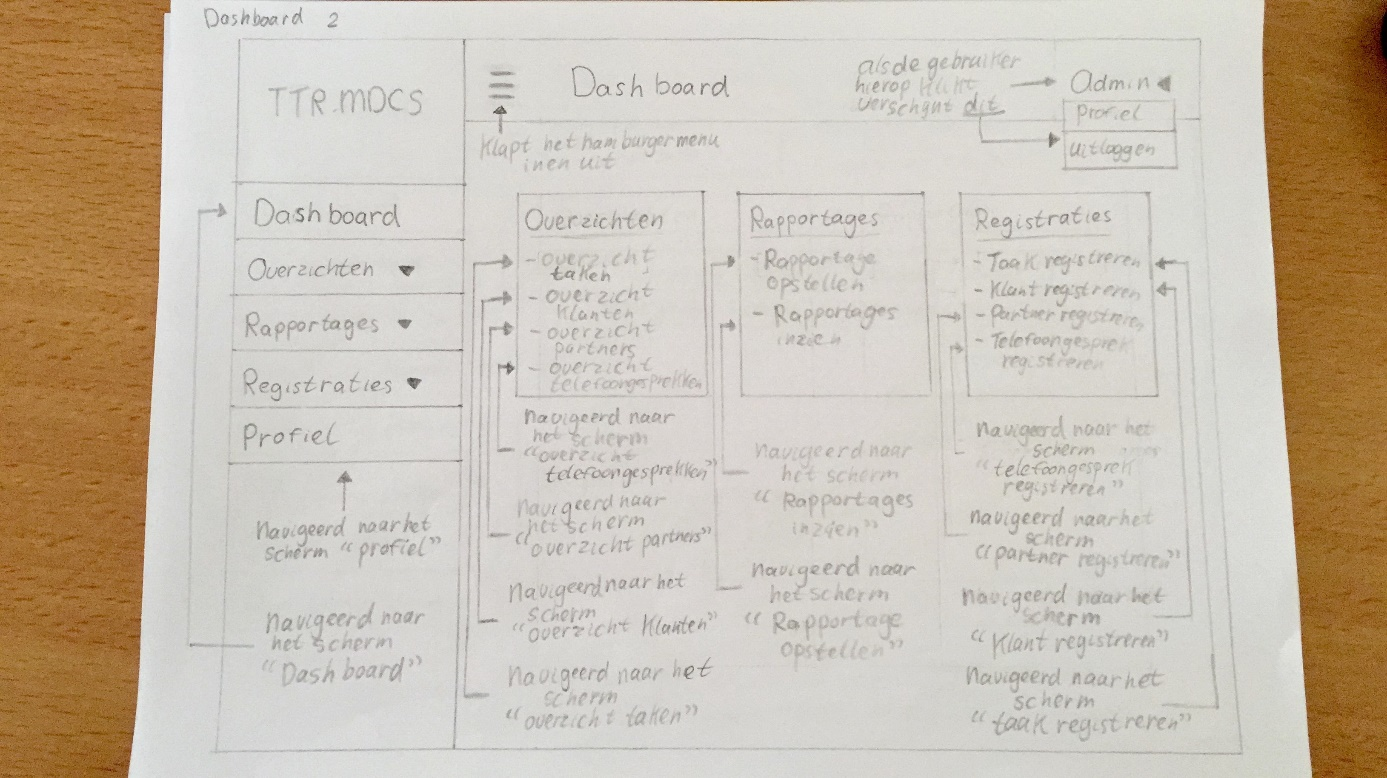 Dashboard 2
TTR.MDCS
Dashboard
als de gebruiker
hierop klikt
verschijnt dit
Admin
Profiel
uitloggen
Klapt het hamburger menu
in en uit
Dashboard
Overzichten
Rapportages
Registraties
Profiel
navigeerd naar het
scherm "profiel"
navigeerd naar
het scherm
"Dashboard"
Overzichten
- overzicht
taken
- overzicht
klanten
- overzicht
partners
- overzicht
telefoongesprekken
navigeerd naar
het scherm
"overzicht
telefoongesprekken"
navigeerd naar
het scherm
"overzicht partners"
navigeerd naar het
scherm
"overzicht klanten"
navigeerd naar het
scherm
"overzicht taken"
Rapportages
- Rapportage
opstellen
- Rapportages
inzien
navigeerd naar
het scherm
"Rapportages
inzien"
navigeerd naar
het scherm
"Rapportage
opstellen"
Registraties
- Taak registreren
- Klant registreren
- Partner registreren
- Telefoongesprek
registreren
navigeerd naar het
scherm
"telefoongesprek
registreren"
navigeerd naar het
scherm
"partner registreren"
navigeerd naar het
scherm
"Klant registreren"
navigeerd naar het
scherm
"taak registreren"